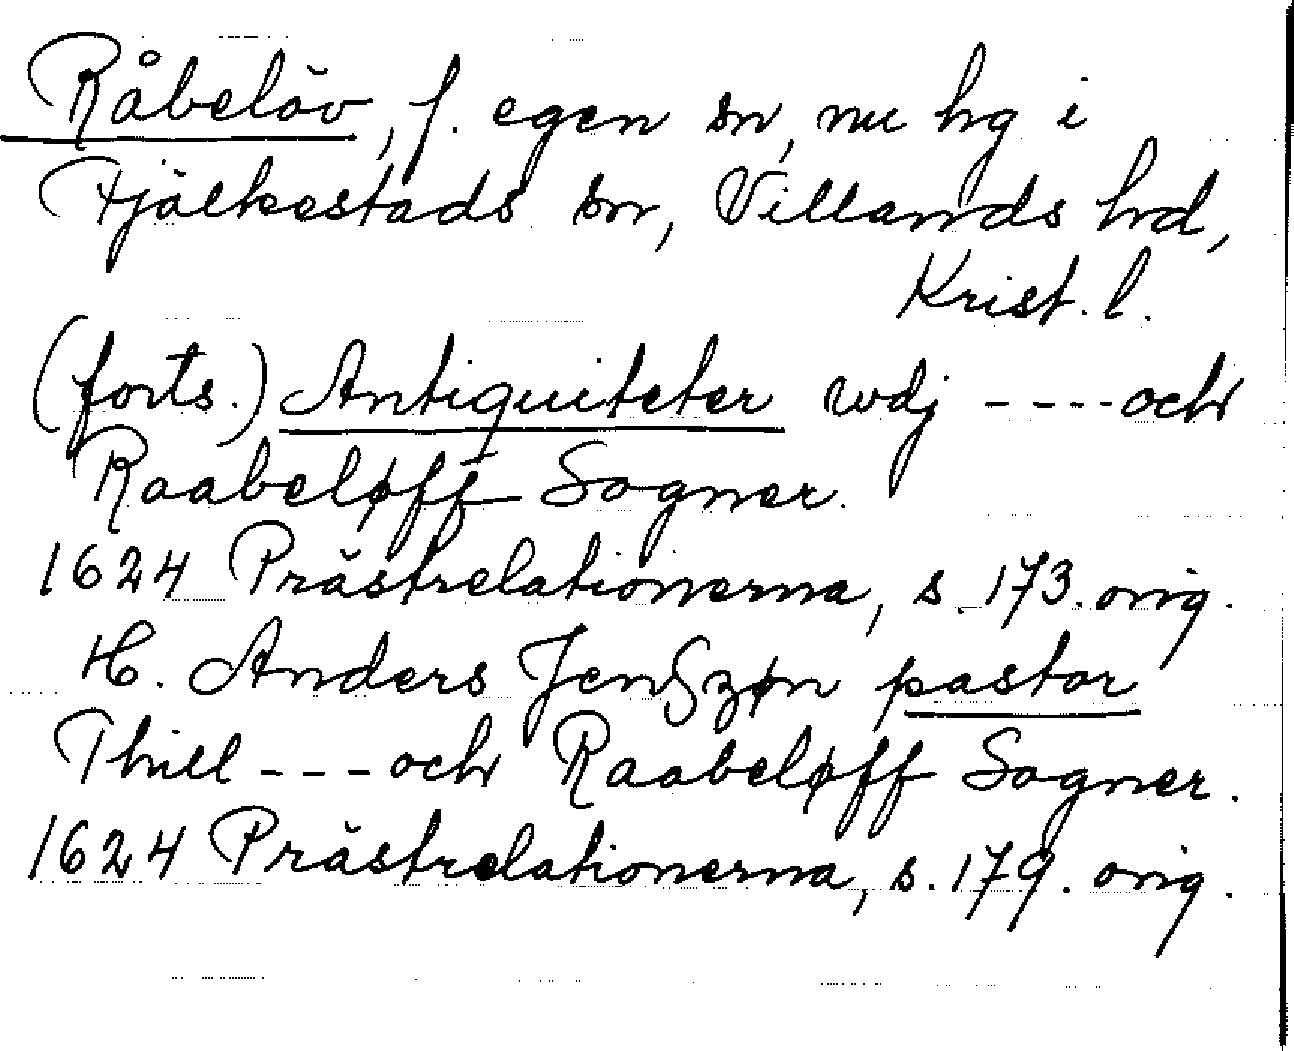 Råbelöv, f. egen sn, nu hg i
Fjälkestads sn, Villands hrd,
Krist. l.
(forts.) Antiquiteter wdj ---- och
Raabeløff Sogner.
1624 Prästrelationerna, s. 173. orig.
H. Anders Jenßzøn pastor
Thill --- och Raabeløff Sogner.
1624 Prästrelationerna, s. 179. orig.